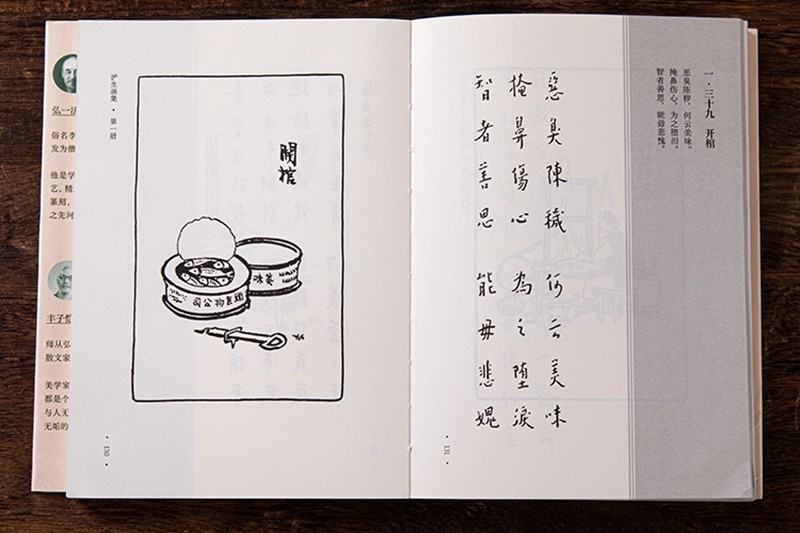 弘一法
俗名李
发为僧
他是学
艺，精
篆刻，
之先河
丰子恺
师从弘
散文家
美学家
都是个
与人无
无垢的
护生画集 · 第一册
開棺
味美
司公物
· 130 ·
一 · 三十九 开棺
恶臭陈秽，何云美味。
掩鼻伤心，为之堕泪。
智者善思，能毋悲愧。
惡臭陳穢 何云美味
掩鼻傷心 為之堕淚
智者善思 能毋悲愧
· 131 ·